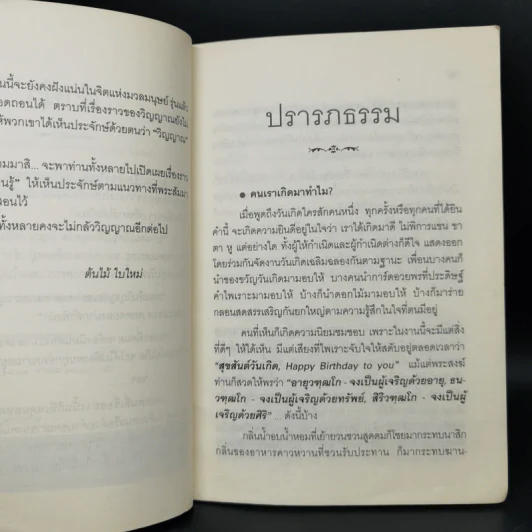 นนี้จะยังคงฝังแน่นในจิตแห่งมวลมนุษย์ รุ่นแล้ว
ถอนได้ ตราบที่เรื่องราวของวิญญาณยังไม่
ห้พวกเขาได้เห็นประจักษ์ด้วยตนว่า "วิญญาณ"
มมาสิ... จะพาท่านทั้งหลายไปเปิดเผยเรื่องงาน
นรู้" ให้เห็นประจักษ์ตามแนวทางที่พระสัมมา
สอนไว้
ทั้งหลายคงจะไม่กลัววิญญาณอีกต่อไป
ต้นไม้ ใบใหม่
ปรารภธรรม
● คนเราเกิดมาทำไม?
เมื่อพูดถึงวันเกิดใครสักคนหนึ่ง ทุกครั้งหรือทุกคนที่ได้ยิน
คำนี้ จะเกิดความยินดีอยู่ในใจว่า เราได้เกิดมาดี ไม่พิการแขน ขา
ตา หู แต่อย่างใด ทั้งผู้ให้กำเนิดและผู้กำเนิดต่างก็ดีใจ แสดงออก
โดยร่วมกันจัดงานวันเกิดเฉลิมฉลองกันตามฐานะ เพื่อนบางคนก็
นำของขวัญวันเกิดมามอบให้ บางคนนำการ์ดอวยพรที่ประดิษฐ์
คำไพเราะมามอบให้ บ้างก็นำดอกไม้มามอบให้ บ้างก็มาร่าย
กลอนสดสรรเสริญกันยกใหญ่ตามความรู้สึกในใจที่ตนมีอยู่
คนที่เห็นก็เกิดความนิยมชมชอบ เพราะในงานนี้จะมีแต่สิ่ง
ที่ดีๆ ให้ได้เห็น มีแต่เสียงที่ไพเราะจับใจให้สดับอยู่ตลอดเวลาว่า
"สุขสันต์วันเกิด, Happy Birthday to you" แม้แต่พระสงฆ์
ท่านก็สวดให้พรว่า "อายุวฑฺฒโก - จงเป็นผู้เจริญด้วยอายุ, ธน-
วฑฺฒโก - จงเป็นผู้เจริญด้วยทรัพย์, สิริวฑฺฒโก - จงเป็นผู้
เจริญด้วยศิริ" ... ดังนี้บ้าง
กลิ่นน้ำอบน้ำหอมที่เย้ายวนชวนสูดดมก็โชยมากระทบนาสิก
กลิ่นของอาหารคาวหวานที่ชวนรับประทาน ก็มากระทบฆาน-